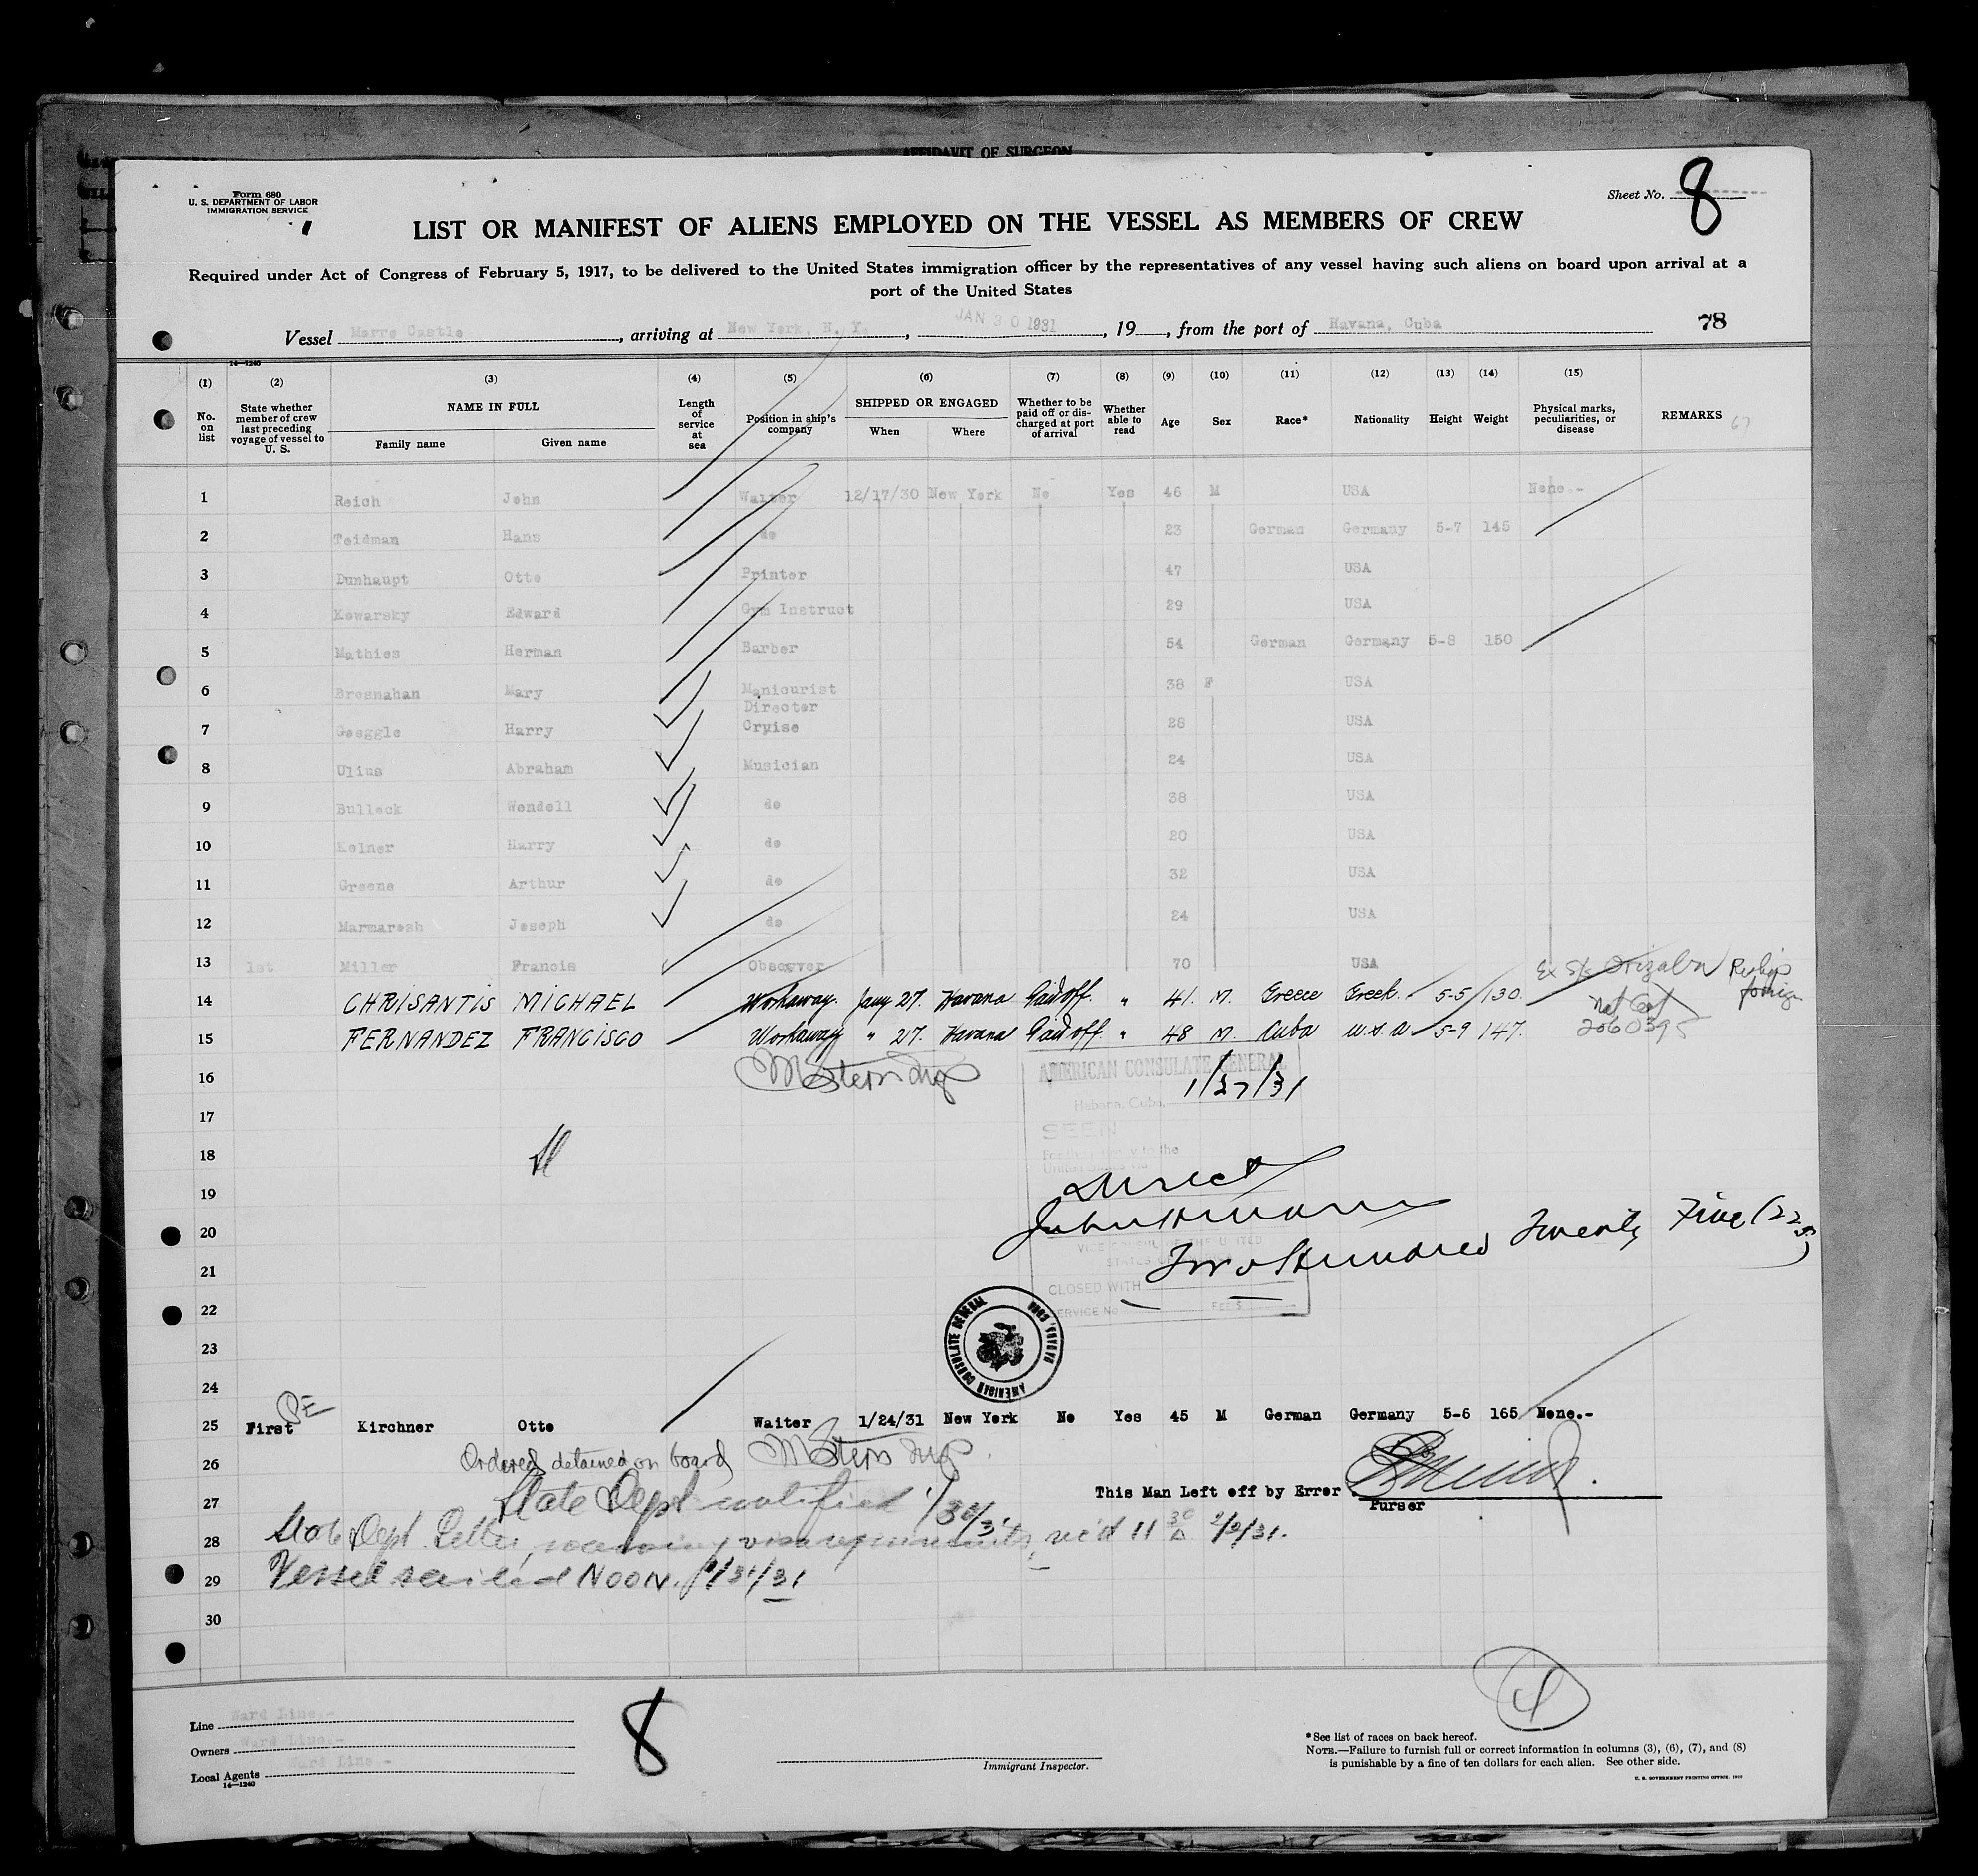 AFFIDAVIT OF SURGEON
Form 680
U. S. DEPARTMENT OF LABOR
IMMIGRATION SERVICE
Sheet No. 8
LIST OR MANIFEST OF ALIENS EMPLOYED ON THE VESSEL AS MEMBERS OF CREW
Required under Act of Congress of February 5, 1917, to be delivered to the United States immigration officer by the representatives of any vessel having such aliens on board upon arrival at a
port of the United States
Vessel Morro Castle, arriving at New York, N. Y., JAN 30 1931, 19, from the port of Havana, Cuba
78
14—1240
(1) (2) (3) (4) (5) (6) (7) (8) (9) (10) (11) (12) (13) (14) (15)
No. on list State whether member of crew last preceding voyage of vessel to U. S. NAME IN FULL Family name Given name Length of service at sea Position in ship's company SHIPPED OR ENGAGED When Where Whether to be paid off or discharged at port of arrival Whether able to read Age Sex Race* Nationality Height Weight Physical marks, peculiarities, or disease REMARKS 67
1 Reich John Waiter 12/17/30 New York No Yes 46 M USA None.-
2 Teidman Hans do 23 German Germany 5-7 145
3 Dunhaupt Otto Printer 47 USA
4 Kowarsky Edward Gym Instruct 29 USA
5 Mathies Herman Barber 54 German Germany 5-8 150
6 Brosnahan Mary Manicurist 38 F USA
Director
7 Goeggle Harry Cruise 28 USA
8 Ulius Abraham Musician 24 USA
9 Bullock Wendell do 38 USA
10 Kolner Harry do 20 USA
11 Greene Arthur do 32 USA
12 Marmarosh Joseph do 24 USA
13 1st Miller Francis Observer 70 USA
Ex S/s Orizaba Reship foreign
14 CHRISANTIS MICHAEL Workaway. Jany 27. Havana Paid off. " 41. M. Greece Greek. 5-5 130.
Nat Cert
15 FERNANDEZ FRANCISCO Workaway " 27. Havana Paid off. " 48 M. Cuba U.S.A. 5-9 147. 2060395
16 M Stern Insp
AMERICAN CONSULATE GENERAL
Habana, Cuba, 1/27/31
17
SEEN
18
For the journey to the
United States via
19 Direct
20
Two Hundred Twenty Five (225)
VICE CONSUL OF THE UNITED
21
CLOSED WITH
22
SERVICE No. FEE $
AMERICAN CONSULATE GENERAL HABANA, CUBA
23
24
25 First Kirchner Otto Waiter 1/24/31 New York No Yes 45 M German Germany 5-6 165 None.-
26 Ordered detained on board M Stern Insp.
This Man Left off by Error
Purser
27 State Dept notified 1/30/31
28 State Dept. Letter, waiving visa requirements, rec'd 11 30 A 2/2/31.
29 Vessel sailed NOON. 1/31/31
30
Line Ward Line.-
Owners Ward Line.-
Local Agents Ward Line.-
14—1240
8
Immigrant Inspector.
*See list of races on back hereof.
NOTE.—Failure to furnish full or correct information in columns (3), (6), (7), and (8)
is punishable by a fine of ten dollars for each alien. See other side.
U. S. GOVERNMENT PRINTING OFFICE